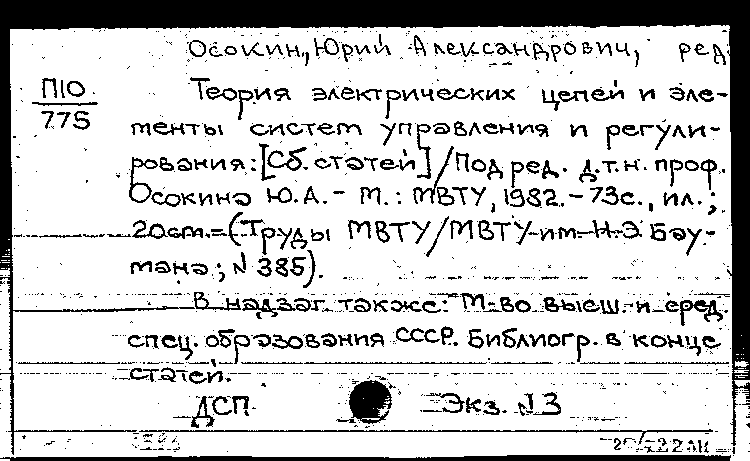 Осокин, Юрий Александрович, ред
П10
775
Теория электрических цепей и эле-
менты систем управления и регули-
рования: [Сб. статей] / Под ред. д.т.н. проф.
Осокина Ю.А. - М.: МВТУ, 1982. - 73с., ил.;
20cm. = (Труды МВТУ/МВТУ им Н.Э. Бау-
мана; N 385).
В надзаг. также: М-во высш. и сред.
спец. образования СССР. Библиогр. в конце
статей.
ДСП
Экз. N 3